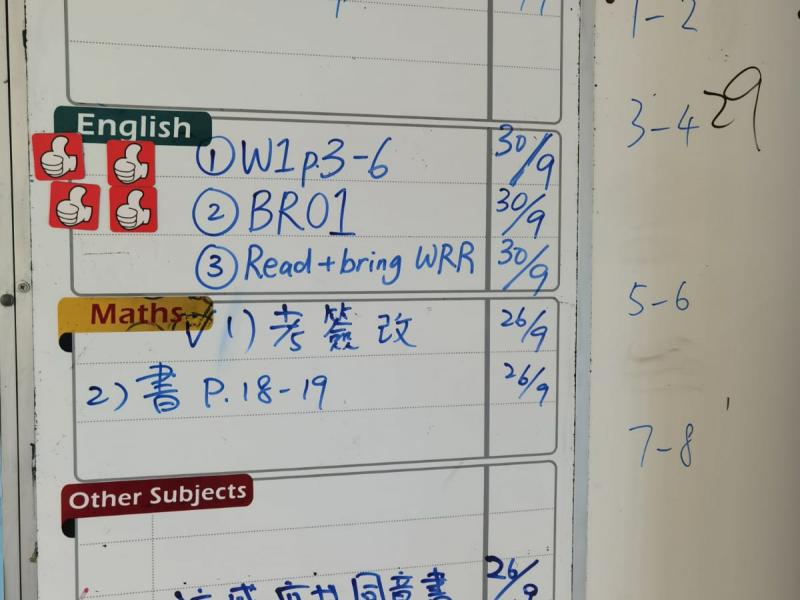 English
① W1 p.3-6 30/9
② BR01 30/9
③ Read + bring WRR 30/9
Maths
1) 考簽改 26/9
2) 書 P.18-19 26/9
Other Subjects
同音書 26/9
1-2
3-4 29
5-6
7-8